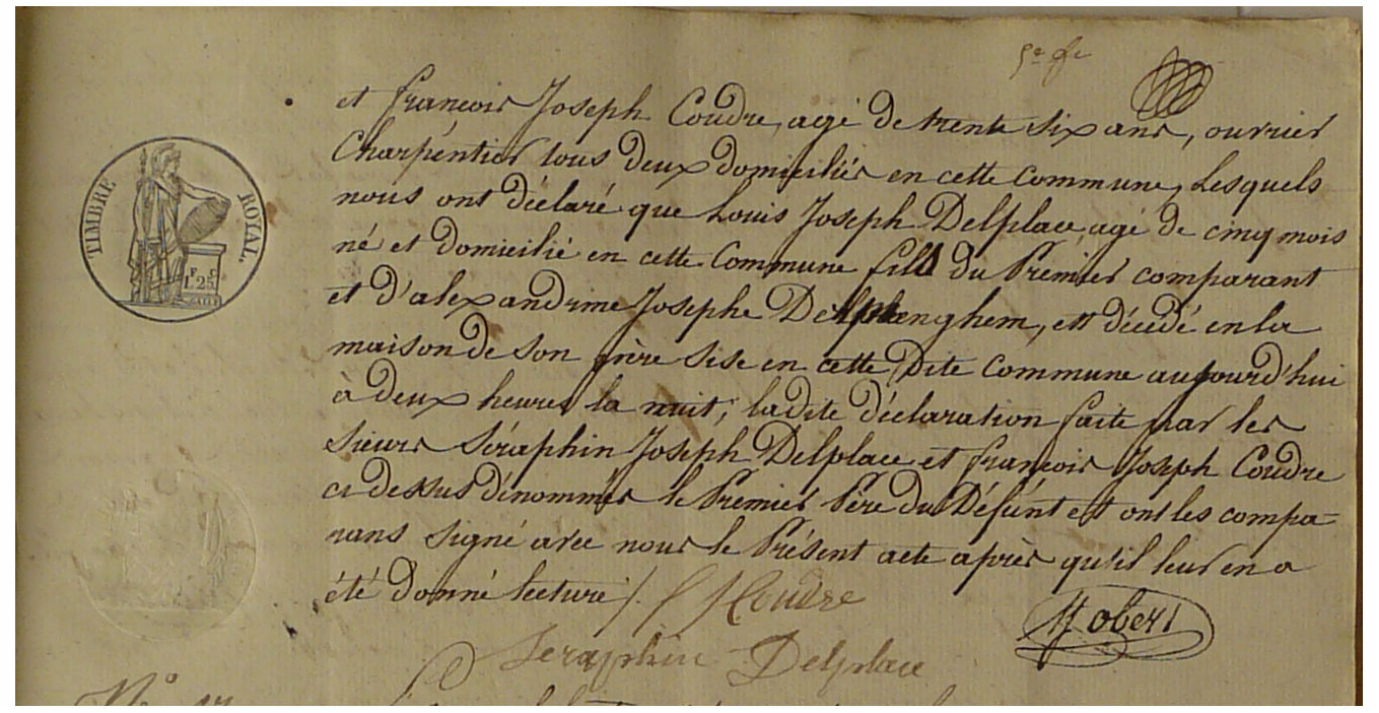 5e f
et françois Joseph Coudre, agé de trente six ans, ouvrier
Charpentier tous deux domiciliés en cette Commune, Lesquels
nous ont déclaré que Louis Joseph Delplace agé de cinq mois
né et domicilié en cette Commune fils du Premier comparant
et d'alexandrine Josephe, est décédé en la
maison de son père sise en cette Dite Commune aujourd'hui
à deux heures la nuit; ladite déclaration faite par les
sieurs Séraphin Joseph Delplace et françois Joseph Coudre
ci dessus dénommés le Premier Père du Défunt et ont les compa=
rans signé avec nous le Présent acte après qu'il leur en a
été donné lecture /.
TIMBRE ROYAL.
1 F. 25 C.
fJCoudre
Seraphin Delplace
N°